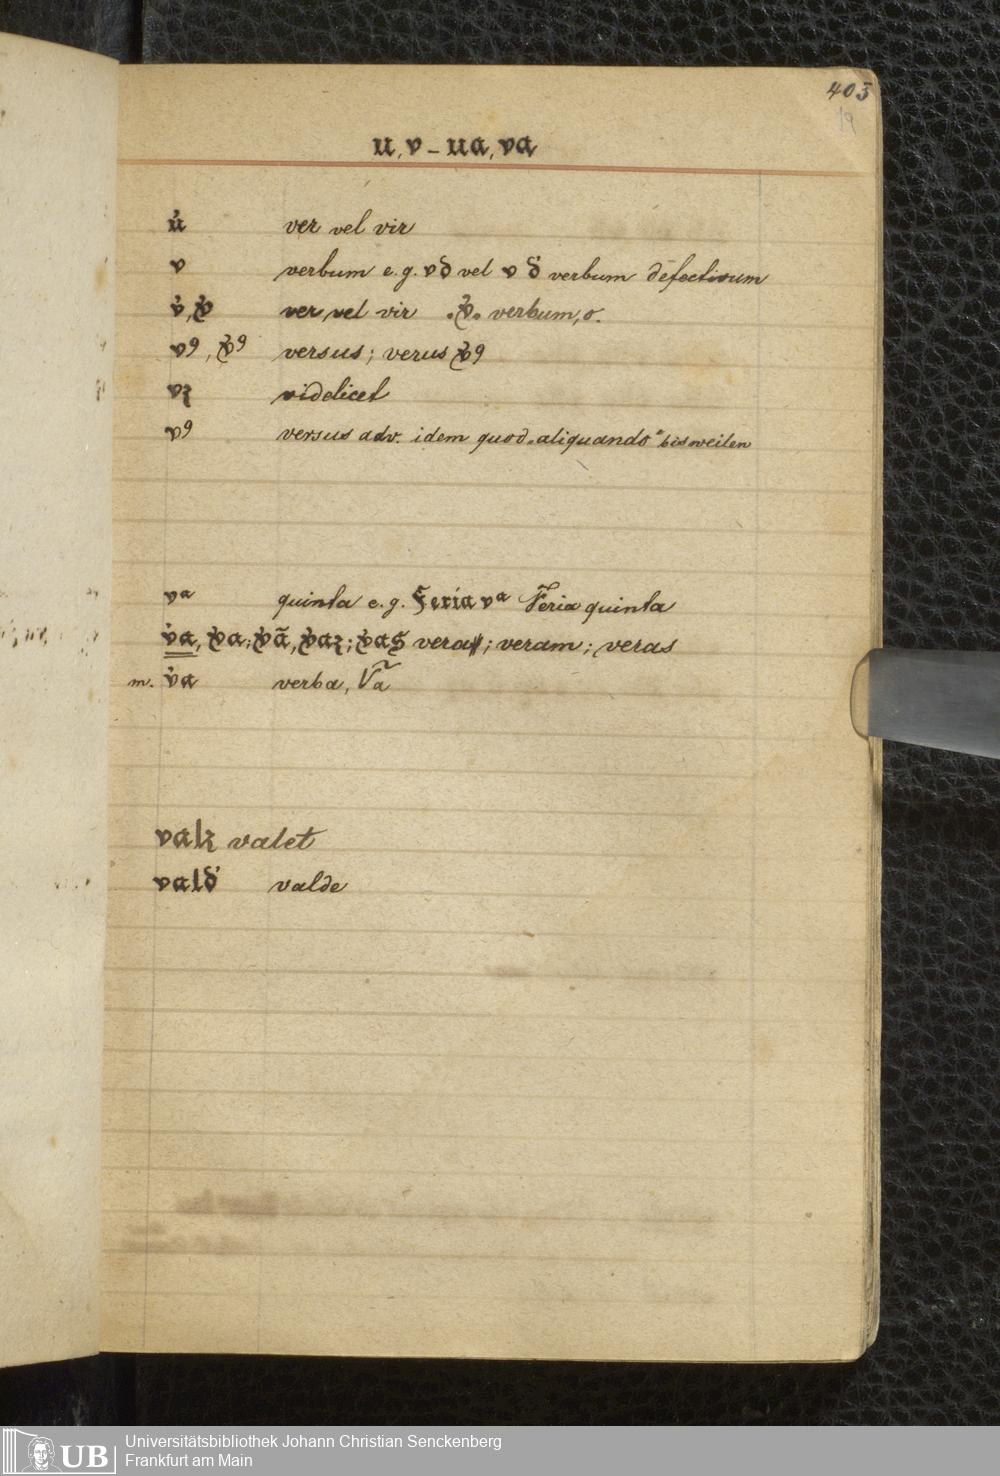 403
19
u, v – ua, va
u̾ ver vel vir
v verbum e. g. vd vel v d̾ verbum defectivum
v̾, ꝟ ver vel vir .ꝟ. verbum, o.
vꝰ, ꝟꝰ versus; verus ꝟꝰ
vꝫ videlicet
vꝰ versus adv. idem quod „aliquando“ bisweilen
vᵃ quinta e. g. Feria vᵃ Feria quinta
v̾a, ꝟa; ꝟã, ꝟaꝫ; ꝟas vera; veram; veras
m. v̾a verba, Ṽa
valꝫ valet
vald̾ valde
UB Universitätsbibliothek Johann Christian Senckenberg
Frankfurt am Main